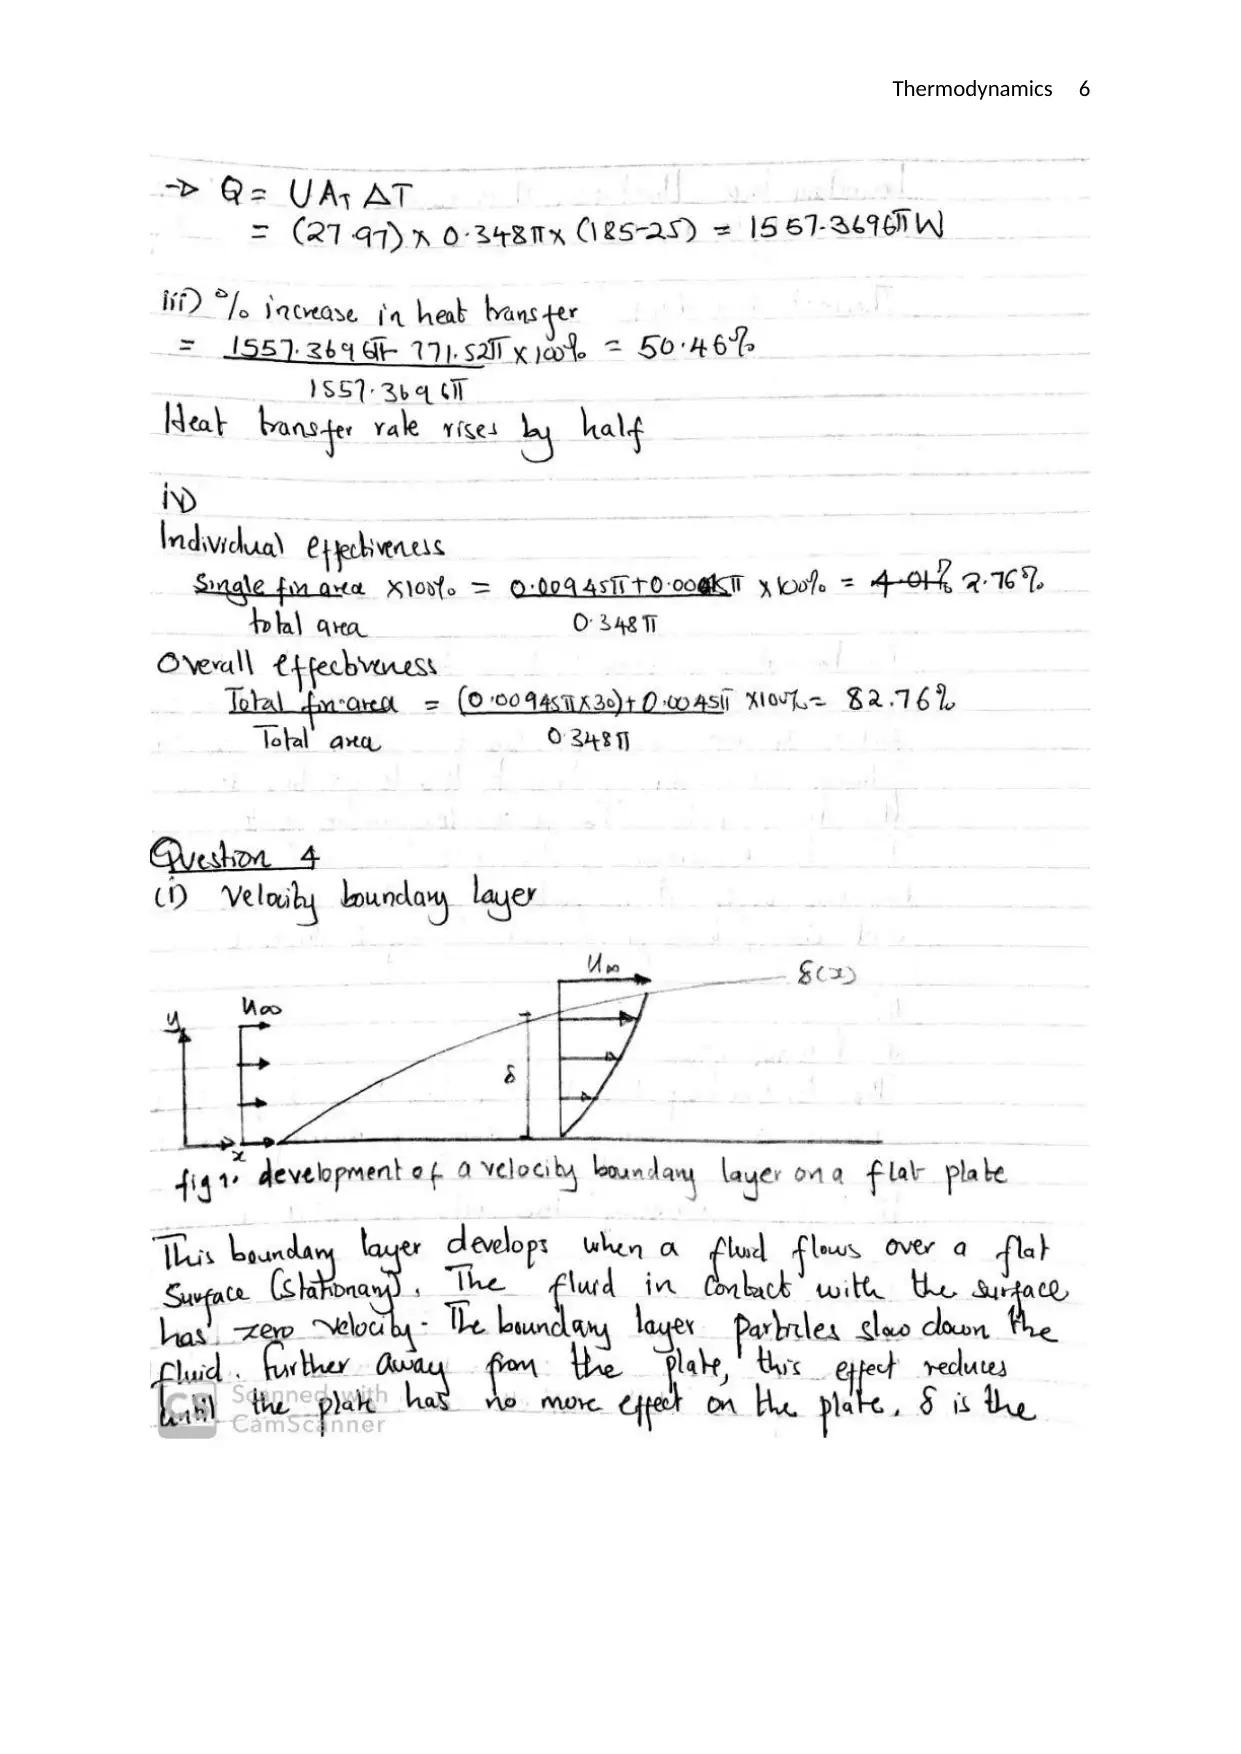 Thermodynamics 6
→ Q = UA_T ΔT
= (27.97) x 0.348π x (185-25) = 1557.3696π W
iii) % increase in heat transfer
= 1557.3696π - 771.52π x 100% = 50.46%
1557.3696π
Heat transfer rate rises by half
iv)
Individual effectiveness
Single fin area x100% = 0.00945π + 0.00015π x 100% = 4.01% 2.76%
total area 0.348π
Overall effectiveness
Total fin area = (0.00945π x 30) + 0.0045π x100% = 82.76%
Total area 0.348π
Question 4
(i) Velocity boundary layer
u∞ δ(x)
y u∞
δ
x
fig 1: development of a velocity boundary layer on a flat plate
This boundary layer develops when a fluid flows over a flat
Surface (Stationary). The fluid in Contact with the surface
has zero velocity. The boundary layer particles slow down the
fluid. Further away from the plate, this effect reduces
until the plate has no more effect on the plate. δ is the
CS Scanned with
CamScanner